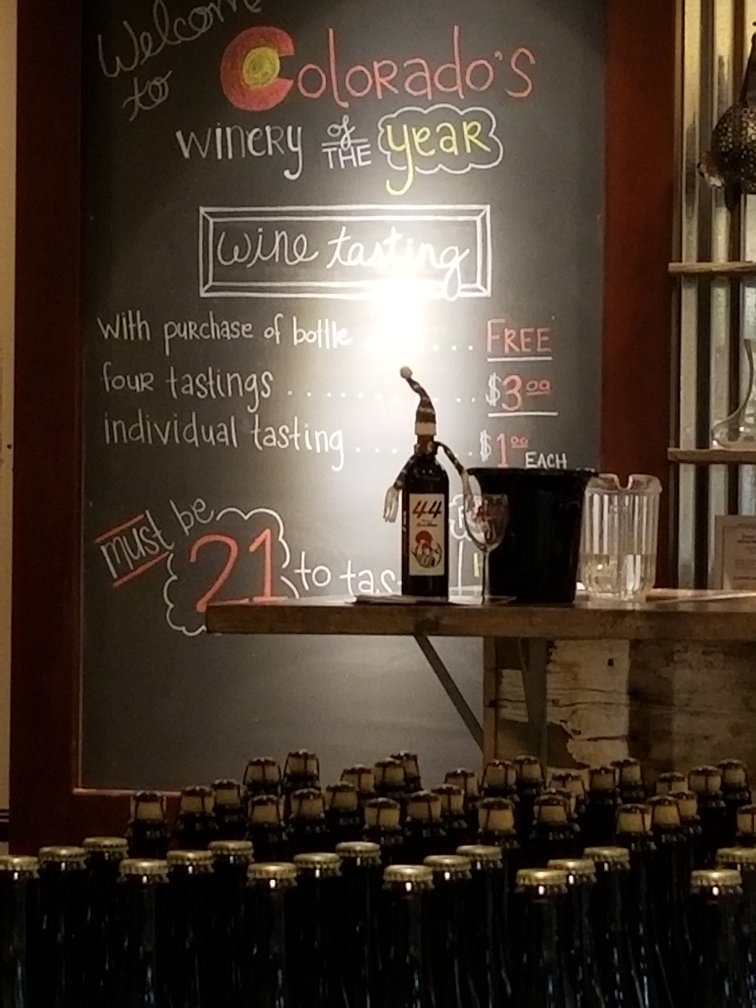 Welcome
to COLORADO'S
WINERY of THE YEAR
wine tasting
With purchase of bottle . . . . FREE
four tastings . . . . . . . . . . . $3.00
individual tasting . . . . . . . $1.00 EACH
must be
21 to tas
44